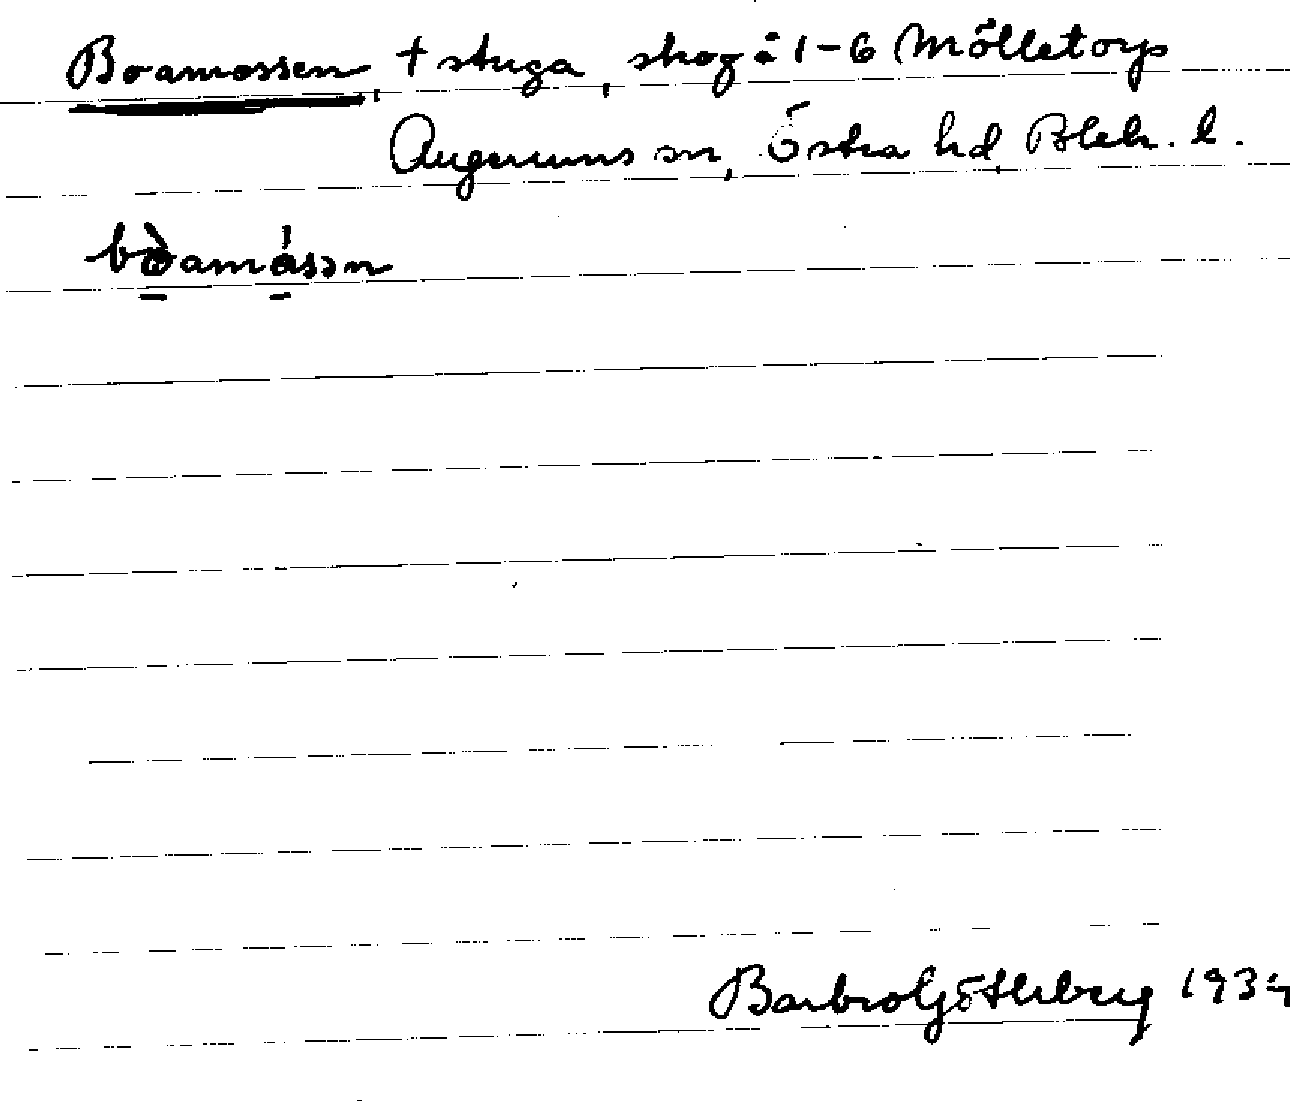 Boamossen, † stuga, skog å 1-6 Mölletorp
Augerums sn, Östra hd, Blek. l.
Barbro Götherberg